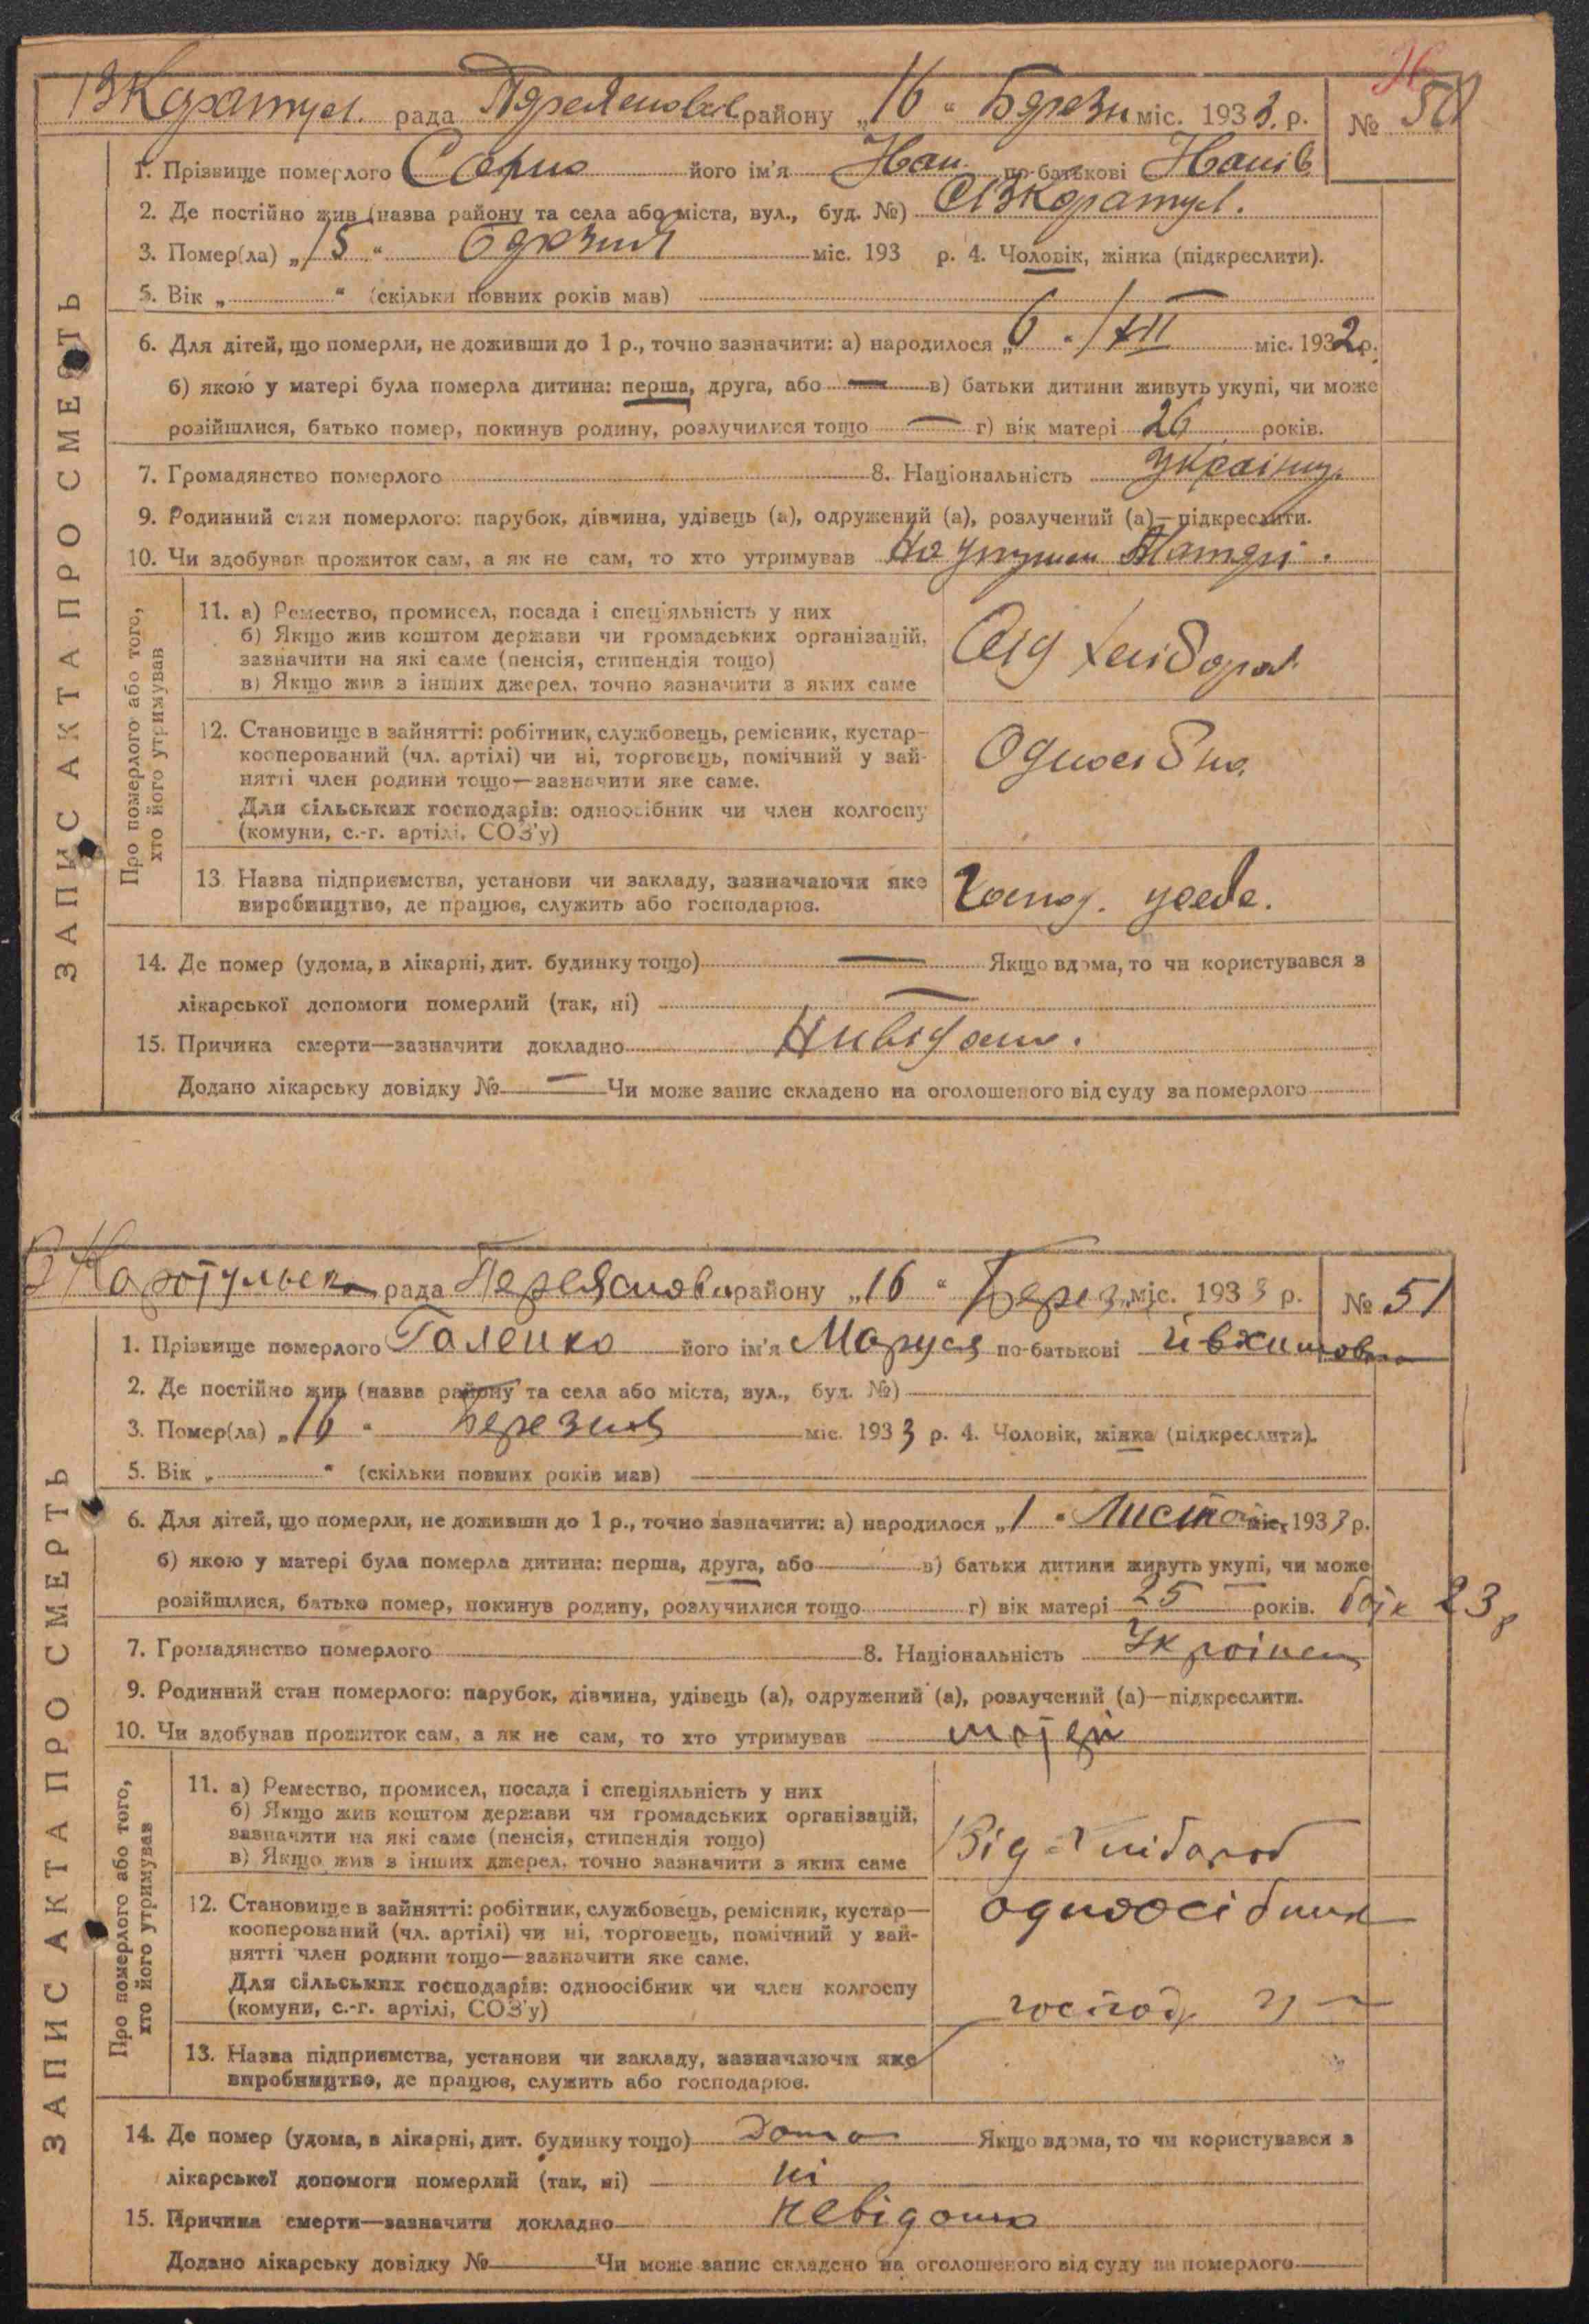 рада району „16 “ міс. 1933. р. № 50
1. Прізвище померлого його ім'я Иван по-батькові
2. Де постійно жив (назва району та села або міста, вул., буд. №)
3. Помер(ла) „15 “ міс. 193 р. 4. Чоловік, жінка (підкреслити).
5. Вік „ “ (скільки повних років мав) —
6. Для дітей, що померли, не доживши до 1 р., точно зазначити: а) народилося „6 “ XII міс. 1932 р.
б) якою у матері була померла дитина: перша, друга, або — в) батьки дитини живуть укупі, чи може
розійшлися, батько помер, покинув родину, розлучилися тощо — г) вік матері 26 років.
7. Громадянство померлого 8. Національність
9. Родинний стан померлого: парубок, дівчина, удівець (а), одружений (а), розлучений (а)—підкреслити.
10. Чи здобував прожиток сам, а як не сам, то хто утримував Матері.
Про померлого або того,
хто його утримував
11. а) Ремество, промисел, посада і спеціяльність у них
б) Якщо жив коштом держави чи громадських організацій,
зазначити на які саме (пенсія, стипендія тощо)
в) Якщо жив з інших джерел, точно зазначити з яких саме
12. Становище в зайнятті: робітник, службовець, ремісник, кустар—
кооперований (чл. артілі) чи ні, торговець, помічний у зай-
нятті член родини тощо—зазначити яке саме.
Для сільських господарів: одноосібник чи член колгоспу
(комуни, с.-г. артілі, СОЗ'у)
13. Назва підприємства, установи чи закладу, зазначаючи яке
виробництво, де працює, служить або господарює.
14. Де помер (удома, в лікарні, дит. будинку тощо) — Якщо вдома, то чи користувався з
лікарської допомоги померлий (так, ні) —
15. Причина смерти—зазначити докладно
Додано лікарську довідку № — Чи може запис складено на оголошеного від суду за померлого
ЗАПИС АКТА ПРО СМЕРТЬ
рада району „16 “ Берез міс. 1933 р. № 51
1. Прізвище померлого Галенко його ім'я Маруся по-батькові
2. Де постійно жив (назва району та села або міста, вул., буд. №)
3. Помер(ла) „16 “ Березня міс. 1933 р. 4. Чоловік, жінка (підкреслити).
5. Вік „ “ (скільки повних років мав)
6. Для дітей, що померли, не доживши до 1 р., точно зазначити: а) народилося „1 “ Листоп міс. 1933 р.
б) якою у матері була померла дитина: перша, друга, або в) батьки дитини живуть укупі, чи може
розійшлися, батько помер, покинув родину, розлучилися тощо г) вік матері 25 років. 23 р
7. Громадянство померлого 8. Національність Україн
9. Родинний стан померлого: парубок, дівчина, удівець (а), одружений (а), розлучений (а)—підкреслити.
10. Чи здобував прожиток сам, а як не сам, то хто утримував матері
Про померлого або того,
хто його утримував
11. а) Ремество, промисел, посада і спеціяльність у них
б) Якщо жив коштом держави чи громадських організацій,
зазначити на які саме (пенсія, стипендія тощо)
в) Якщо жив з інших джерел, точно зазначити з яких саме
Від хлібороб
12. Становище в зайнятті: робітник, службовець, ремісник, кустар—
кооперований (чл. артілі) чи ні, торговець, помічний у зай-
нятті член родини тощо—зазначити яке саме.
Для сільських господарів: одноосібник чи член колгоспу
(комуни, с.-г. артілі, СОЗ'у)
одноосібник
господ
13. Назва підприємства, установи чи закладу, зазначаючи яке
виробництво, де працює, служить або господарює.
14. Де помер (удома, в лікарні, дит. будинку тощо) дома Якщо вдома, то чи користувався з
лікарської допомоги померлий (так, ні) ні
15. Причина смерти—зазначити докладно невідомо
Додано лікарську довідку № Чи може запис складено на оголошеного від суду за померлого
ЗАПИС АКТА ПРО СМЕРТЬ